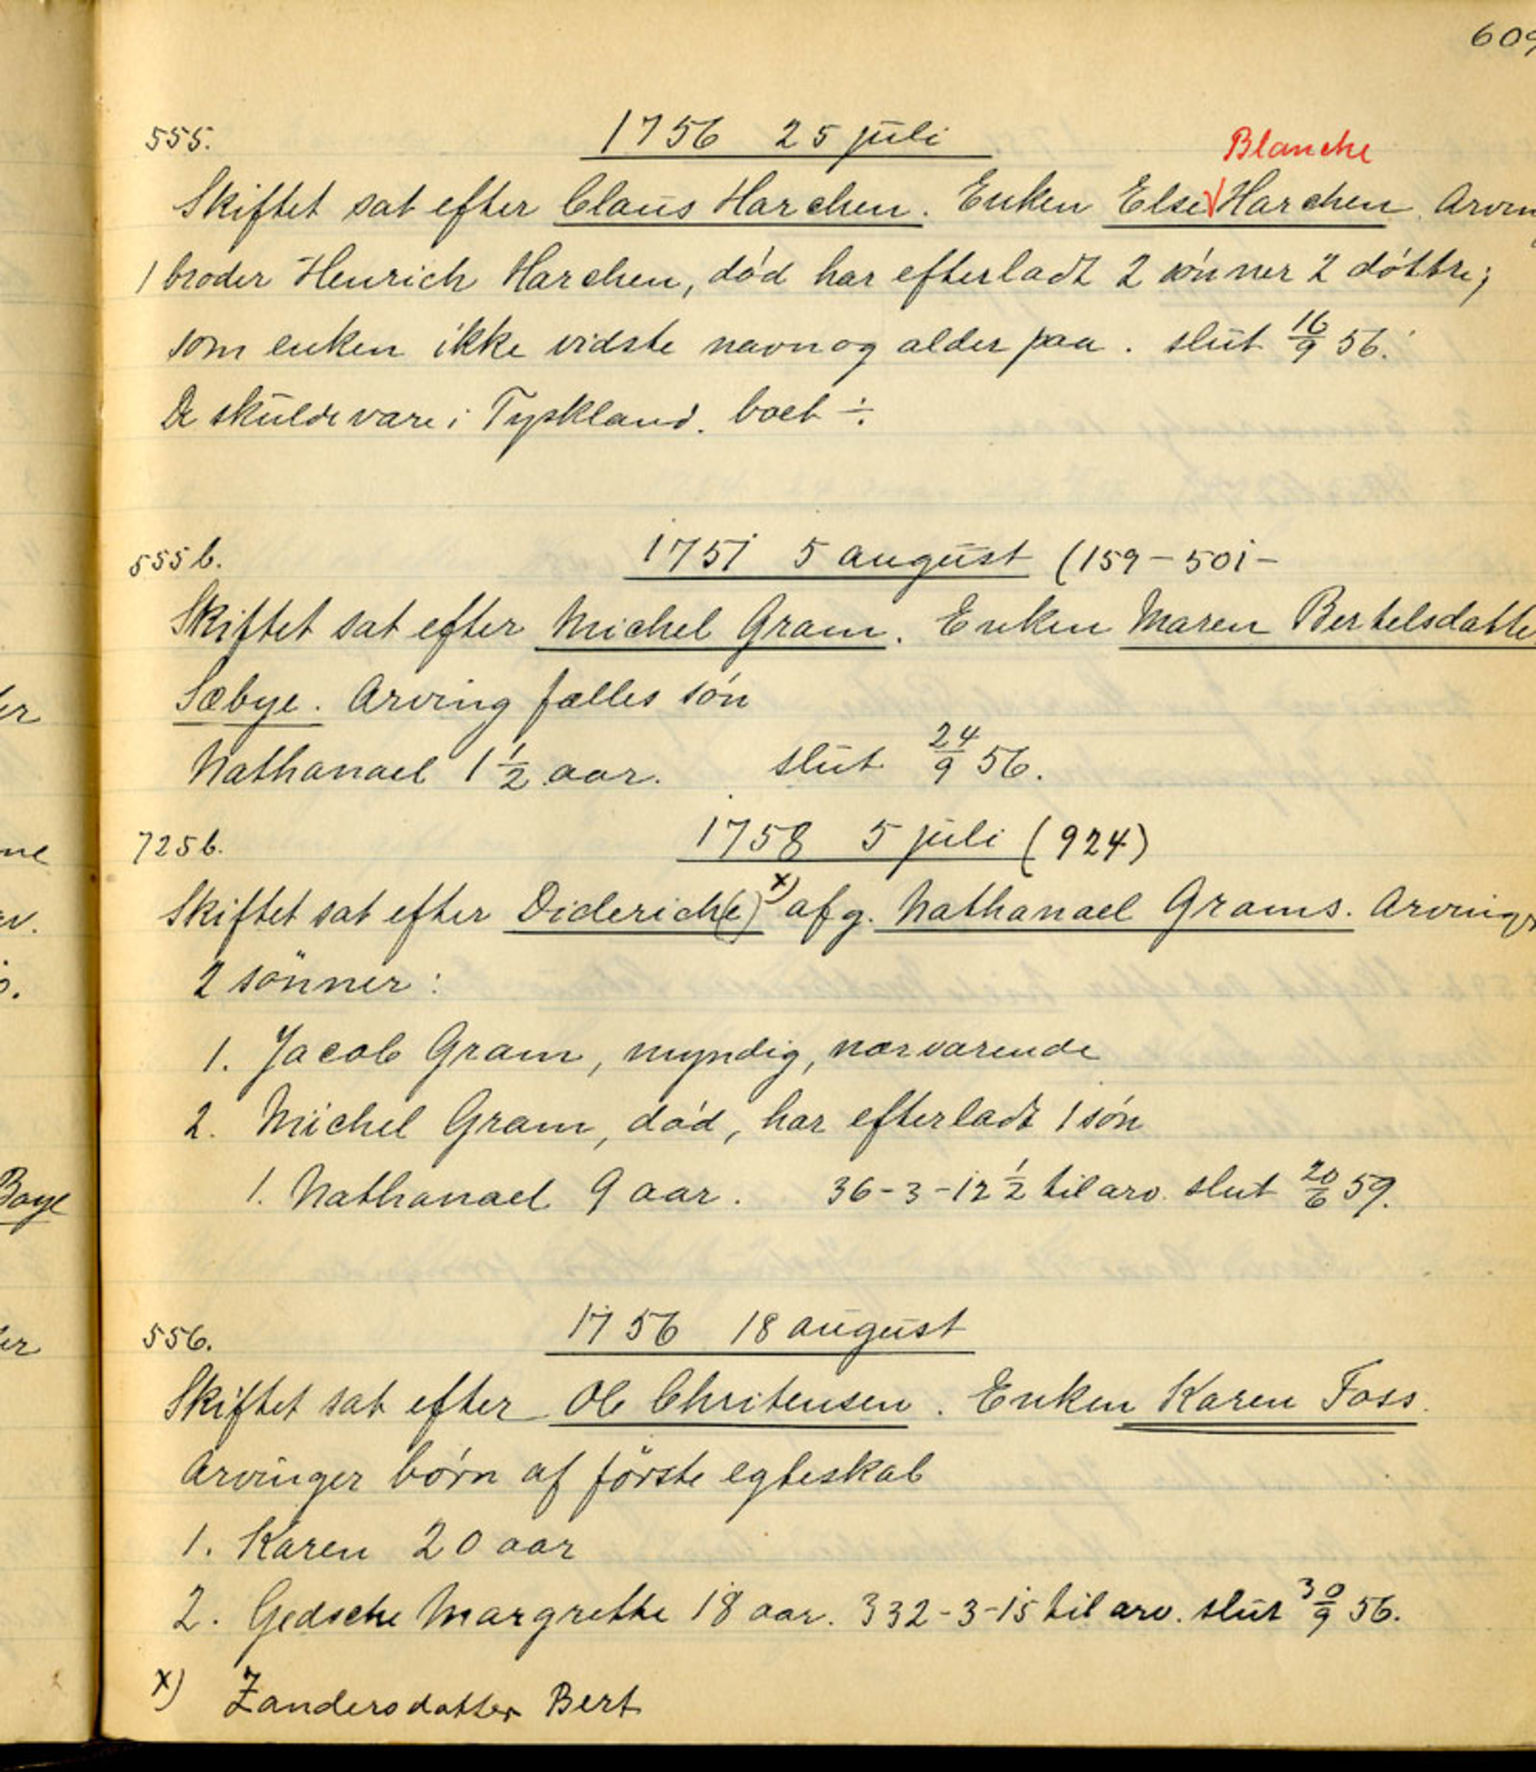 609
555. 1756 25 juli
Blanche
Skiftet sat efter Claus Harchen. Enken Else Harchen. Arvin
1 broder Henrich Harchen, død har efterladt 2 sønner 2 døttre;
som enken ikke vidste navn og alder paa. slut 16/9 56.
De skulde være i Tyskland. boet ÷.
555b. 1751 5 august (159-501-
Skiftet sat efter Michel Gram. Enken Maren Bertelsdatte
Sæbye. Arving fælles søn
Nathanael 1 1/2 aar. slut 24/9 56.
725b. 1758 5 juli (924)
Skiftet sat efter Diderich(e) x) afg. Nathanael Grams. Arvinger
2 sönner:
1. Jacob Gram, myndig, nærværende
2. Michel Gram, død, har efterladt 1 søn
1. Nathanael 9 aar. 36-3-12 1/2 til arv. slut 20/6 59.
556. 1756 18 august
Skiftet sat efter Ole Chritensen. Enken Karen Foss.
Arvinger børn af første egteskab
1. Karen 20 aar
2. Gedsche Margrethe 18 aar. 332-3-15 til arv. slut 30/9 56.
x) Zandersdatter Bert